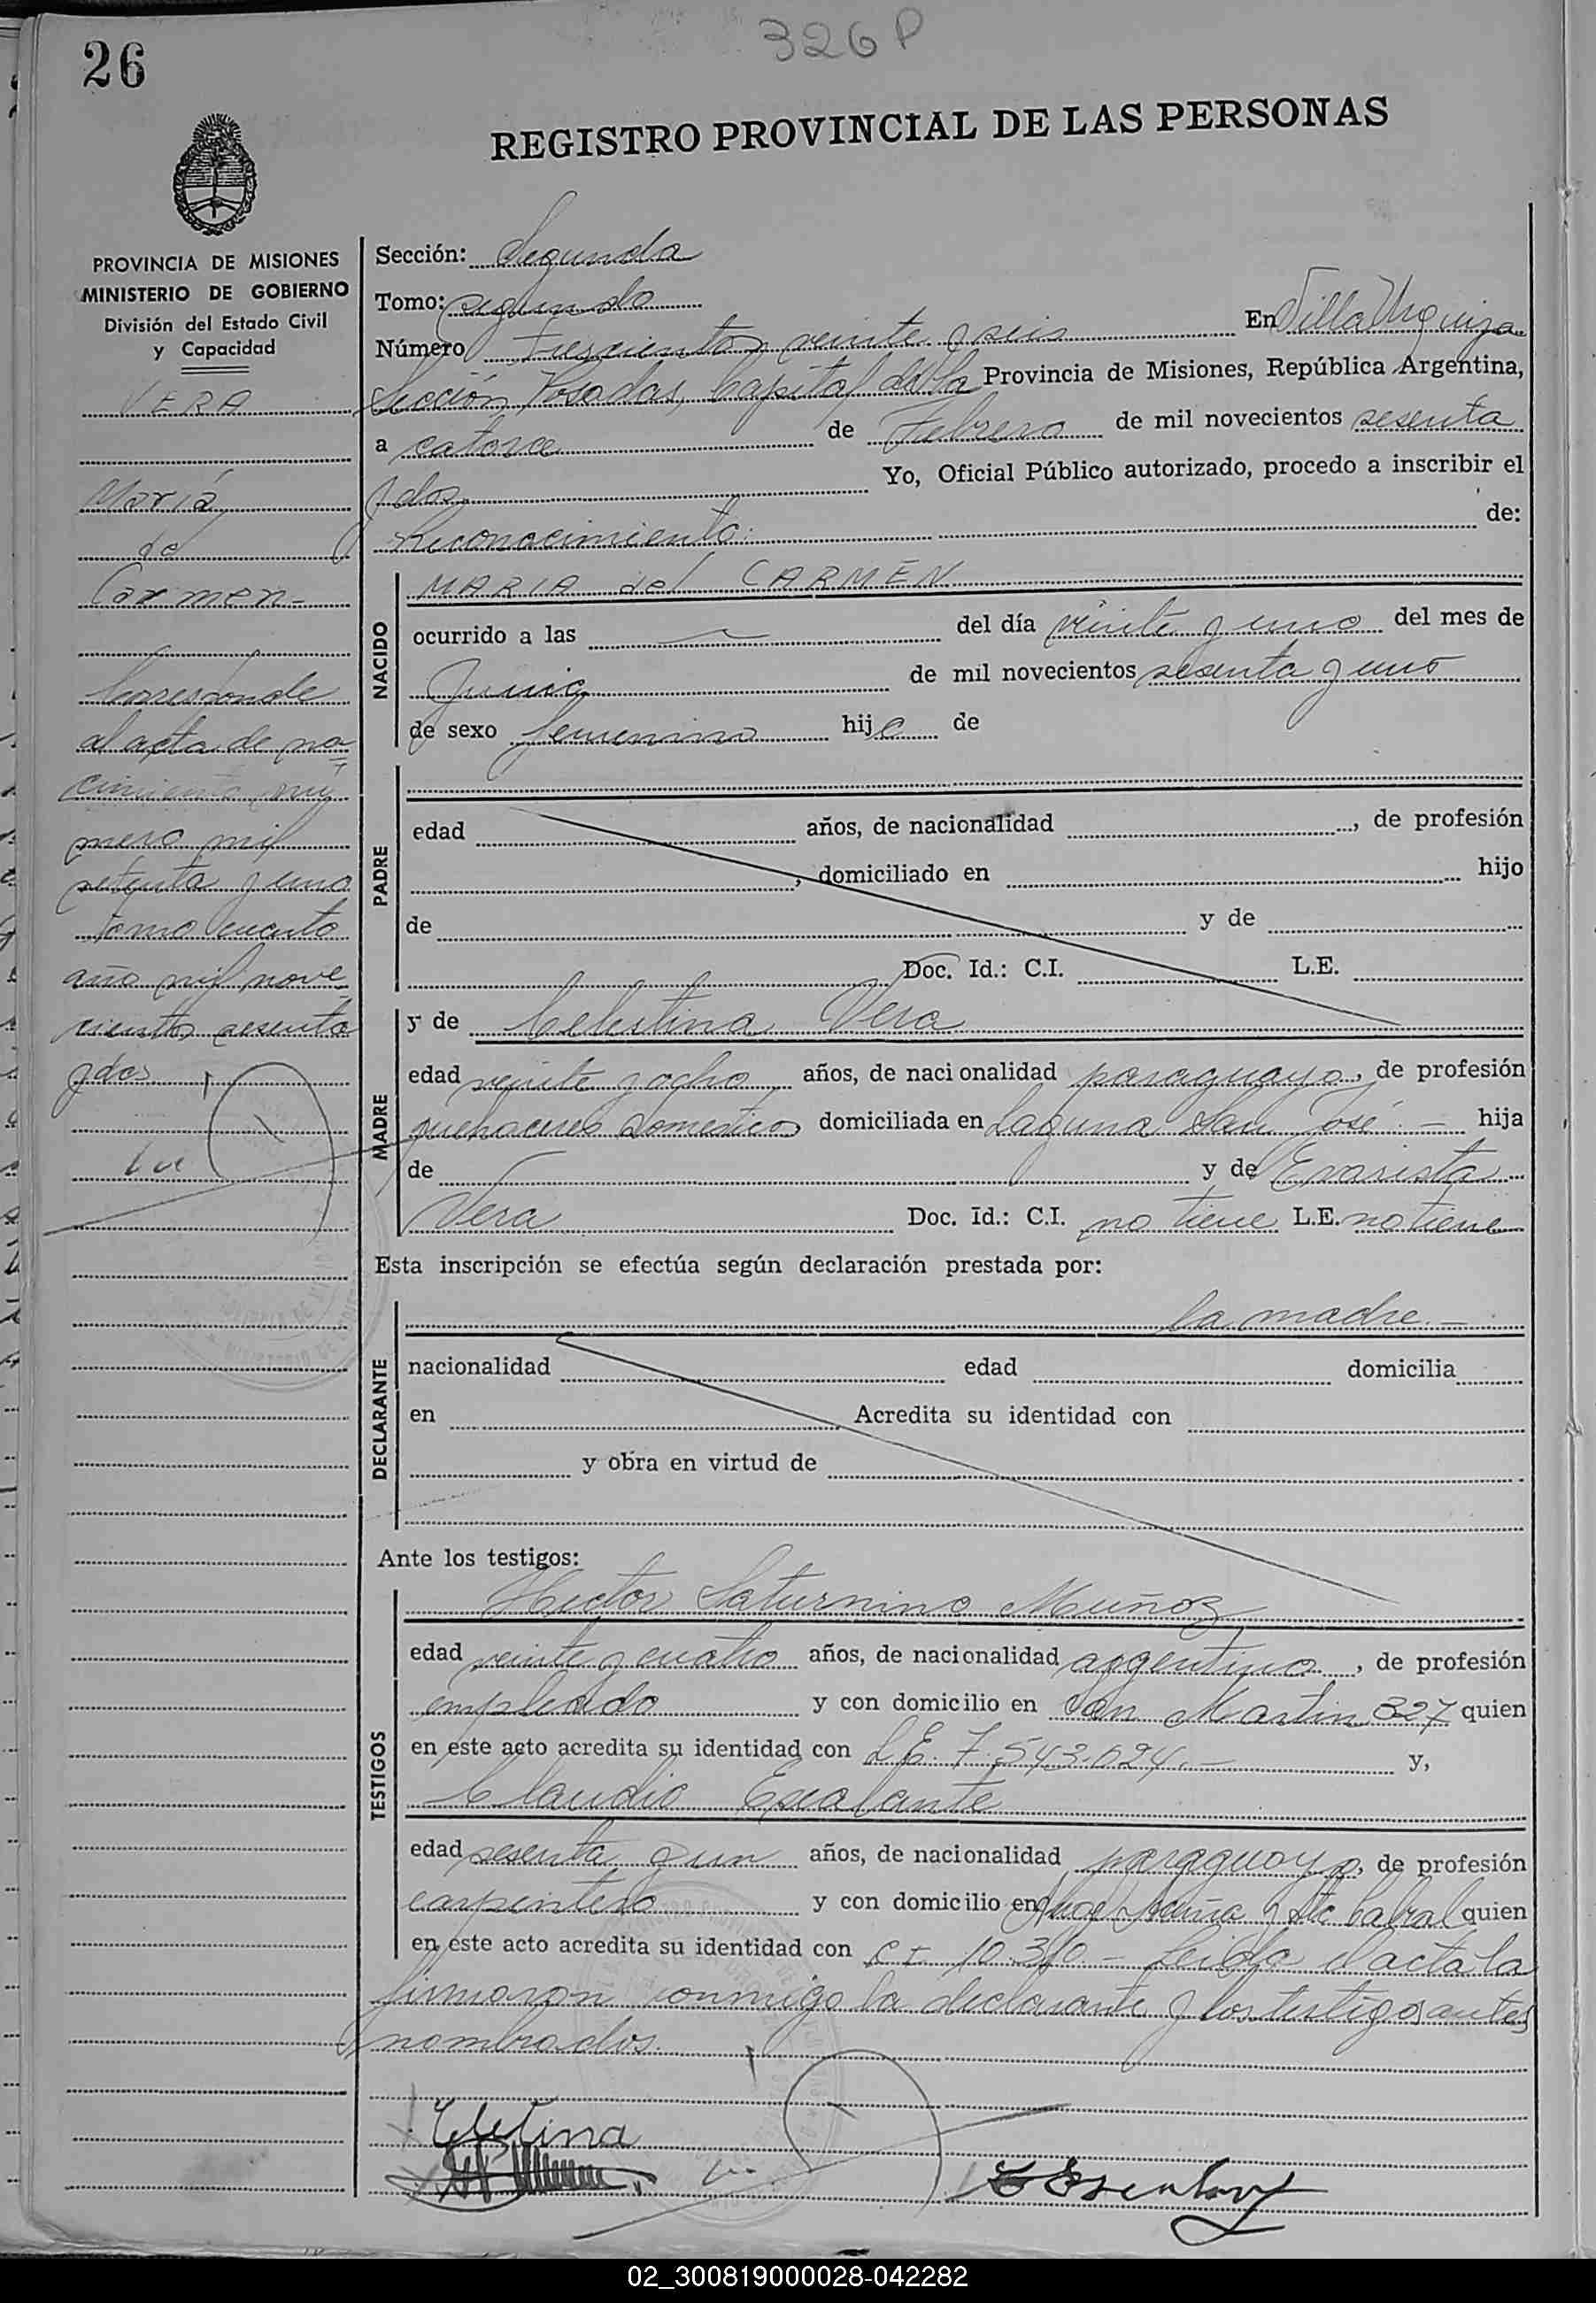 326 P
26
REGISTRO PROVINCIAL DE LAS PERSONAS
PROVINCIA DE MISIONES
MINISTERIO DE GOBIERNO
División del Estado Civil
y Capacidad
VERA
María
del
Carmen-
Corresponde
al acta de na-
cimiento nú
mero mil
setenta y uno
tomo cuarto
año mil nove-
cientos sesenta
y dos
Sección: Segunda
Tomo: segundo
Número Trescientos veinte y seis En Villa Urquiza
Sección Posadas, Capital de la Provincia de Misiones, República Argentina,
a catorce de Febrero de mil novecientos sesenta
y dos Yo, Oficial Público autorizado, procedo a inscribir el
Reconocimiento: de:
NACIDO
MARIA del CARMEN
ocurrido a las del día veinte y uno del mes de
Junio de mil novecientos sesenta y uno
de sexo femenino hija de
PADRE
edad años, de nacionalidad , de profesión
, domiciliado en hijo
de y de
Doc. Id.: C.I. L.E.
MADRE
y de Celestina Vera
edad veinte y ocho años, de nacionalidad paraguaya, de profesión
quehaceres domesticos domiciliada en Laguna San José - hija
de y de Evarista
Vera Doc. Id.: C.I. no tiene L.E. no tiene
Esta inscripción se efectúa según declaración prestada por:
DECLARANTE
la madre -
nacionalidad edad domicilia
en Acredita su identidad con
y obra en virtud de
Ante los testigos:
TESTIGOS
Hector Saturnino Muñoz
edad veinte y cuatro años, de nacionalidad argentino, de profesión
empleado y con domicilio en San Martin 327 quien
en este acto acredita su identidad con L.E. 7.543.024.- y,
Claudio Escalante
edad sesenta y un años, de nacionalidad paraguayo, de profesión
carpintero y con domicilio en Acuña y Sto Cabral quien
en este acto acredita su identidad con C I. 10.310.- Leida el acta la
firmaron conmigo la declarante y los testigos antes
nombrados.
Celetina
02_300819000028-042282